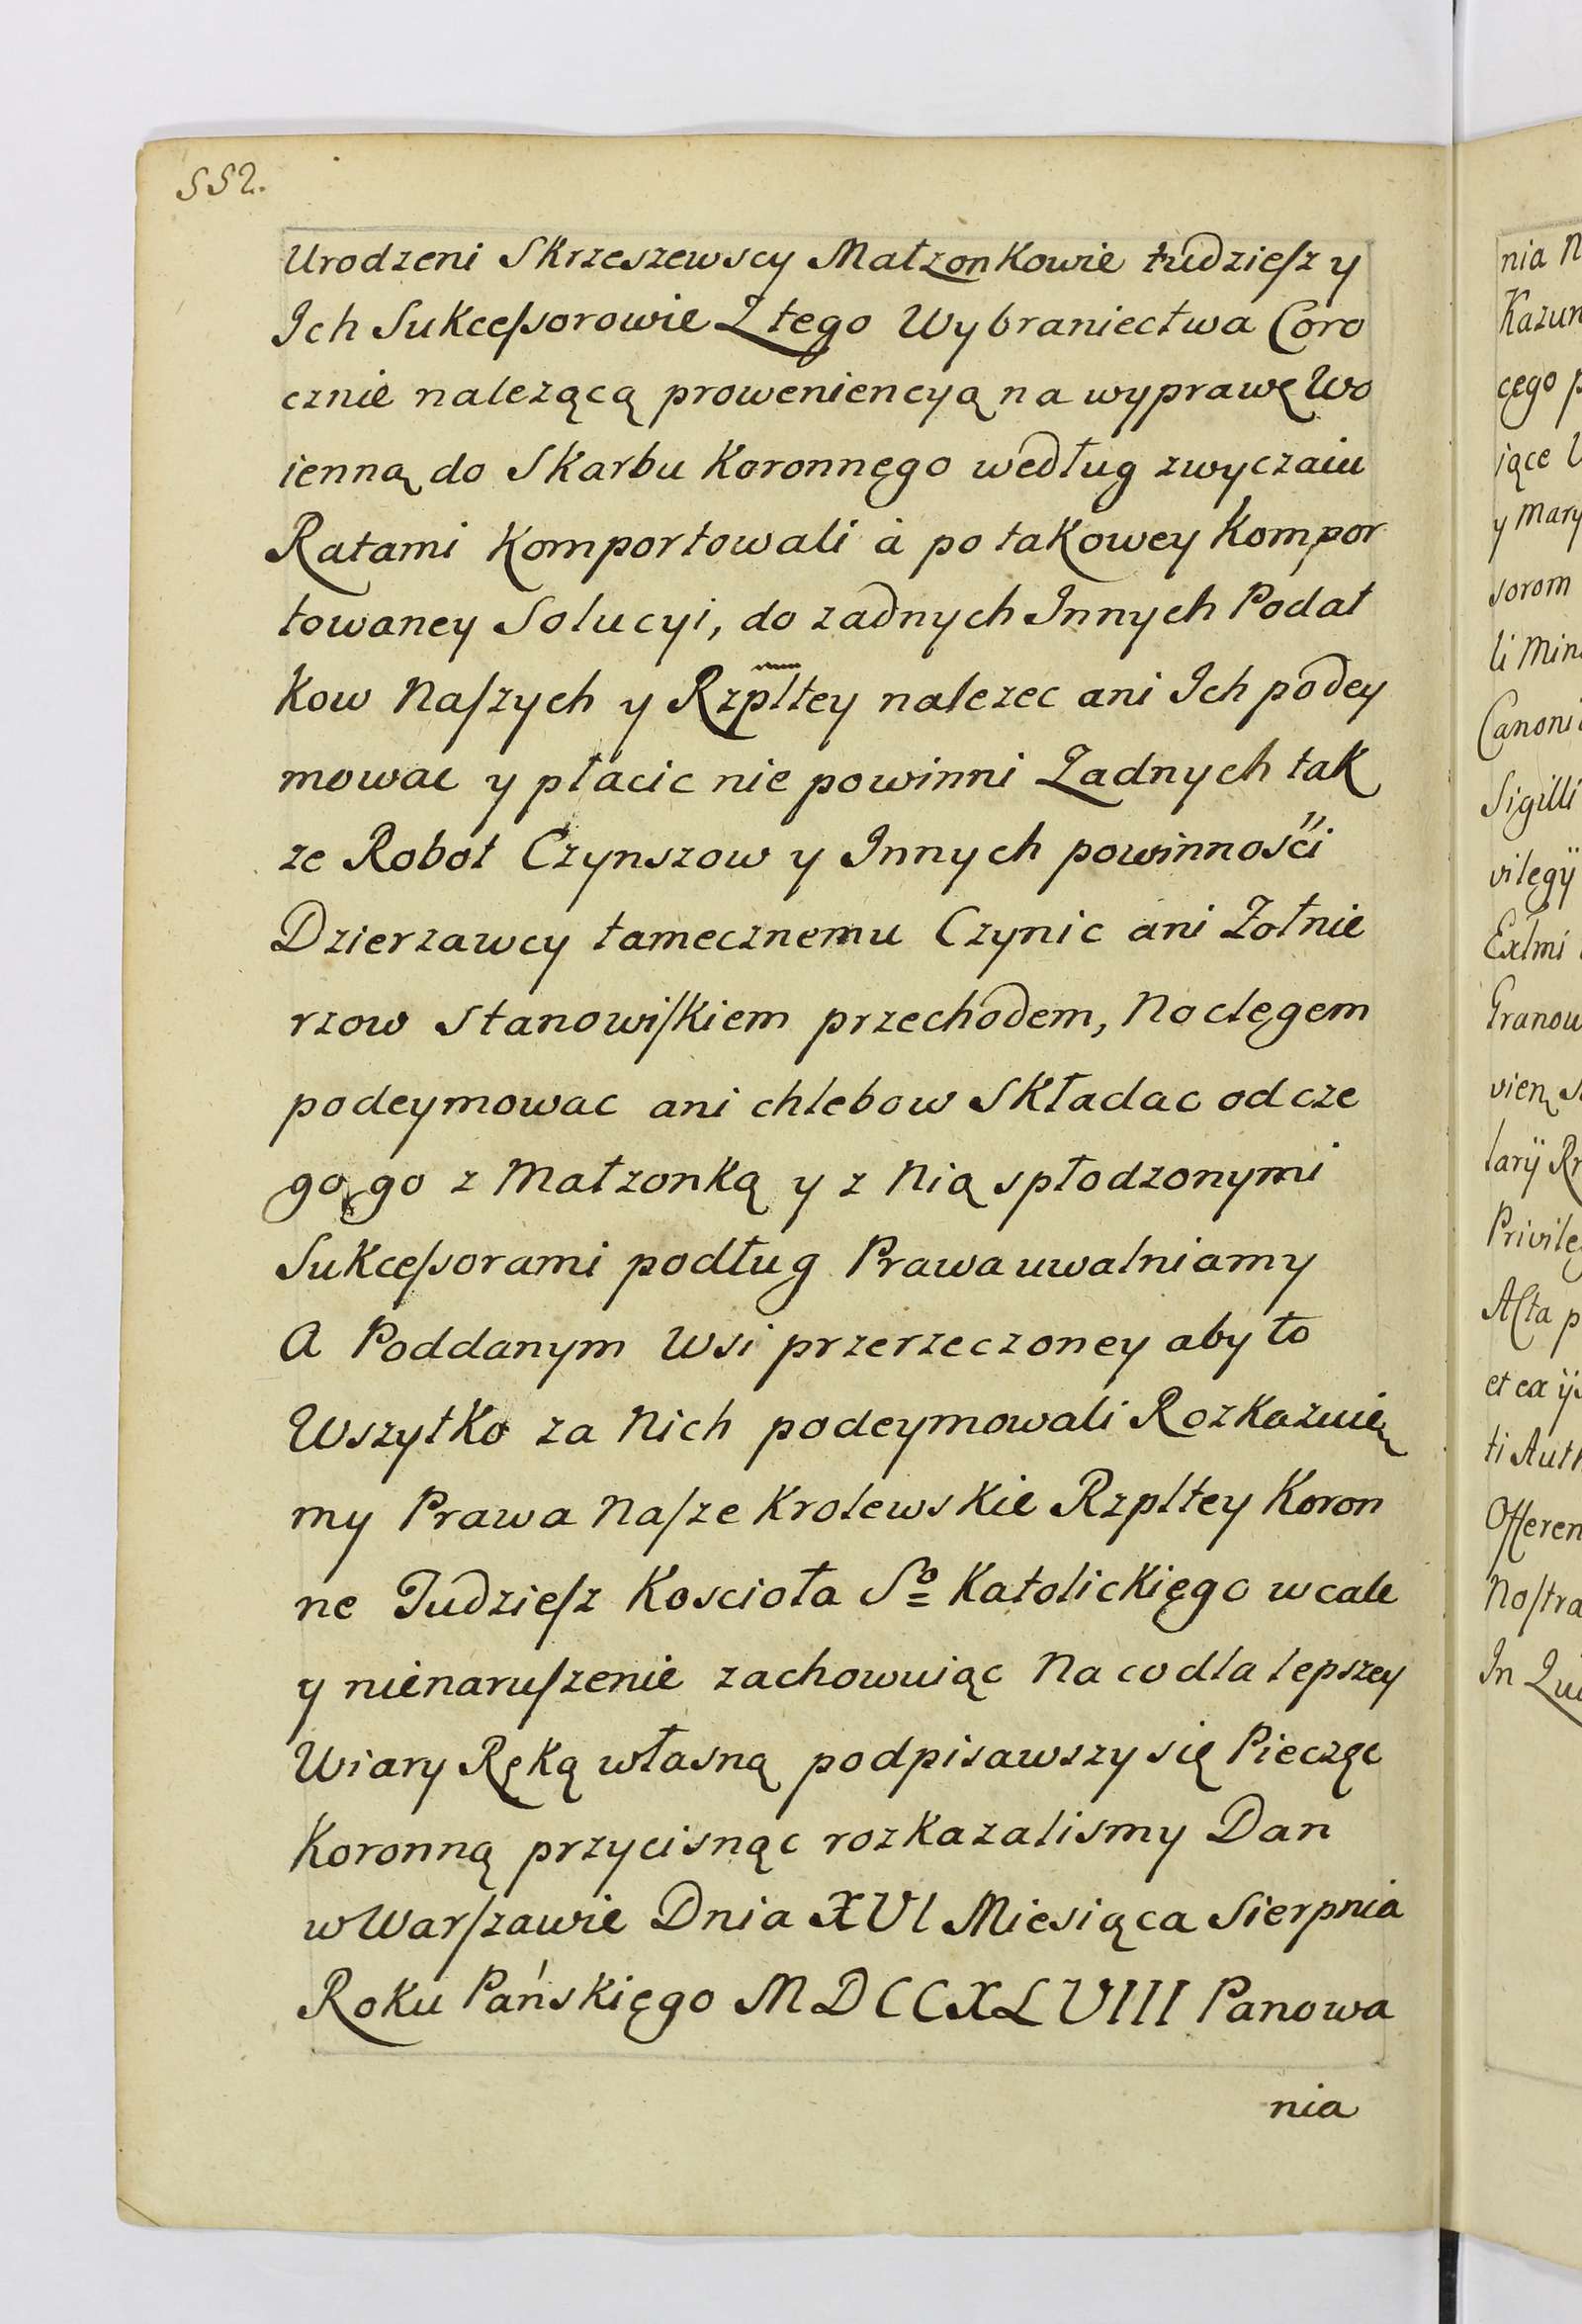 552.
Urodzeni Skrzeszewscy Małzonkowie tudzieſz y
Ich Sukceſsorowie Z tego Wybraniectwa Coro
cznie nalezącą proweniencyą na wyprawę Wo
ienną do Skarbu Koronnęgo według zwyczaiu
Ratami Komportowali à po takowey Kompor
towaney Solucyi, do zadnych Innych Podat
kow Naſzych y Rzpltey nalezec ani Ich podey
mowac y płacic nie powinni Zadnych tak
ze Robot Czynszow y Innych powinnośći
Dzierzawcy tamecznemu Czynic ani Zołnie
rzow Stanowiſkiem przechodem, Noclęgem
podeymowac ani chlebow Składac od cze
go go z Małzonką y z Nią spłodzonymi
Sukceſsorami podług Prawa uwalniamy
A Poddanym Wsi przerzeczoney aby to
Wszytko za Nich podeymowali Rozkazuię
my Prawa Naſze Krolewskie Rzpltey Koron
ne Tudzieſz Koscioła So Katolickięgo w cale
y nienaruſzenie zachowuiąc Na co dla lepszey
Wiary Ręką własną podpisawszy się Pieczęc
Koronną przycisnąc rozkazalismy Dan
w Warſzawie Dnia XVI Miesiąca Sierpnia
Roku Pańskięgo MDCCXLVIII Panowa
nia
nia
Kazun
cęgo
iące
y Mary
sorom
li
Canoni
Sigilli
vilegÿ
Exlmi
Granow
larÿ
Privileg
Acta p
et ex ÿs
ti Auth
Offeren
Noſtra
In